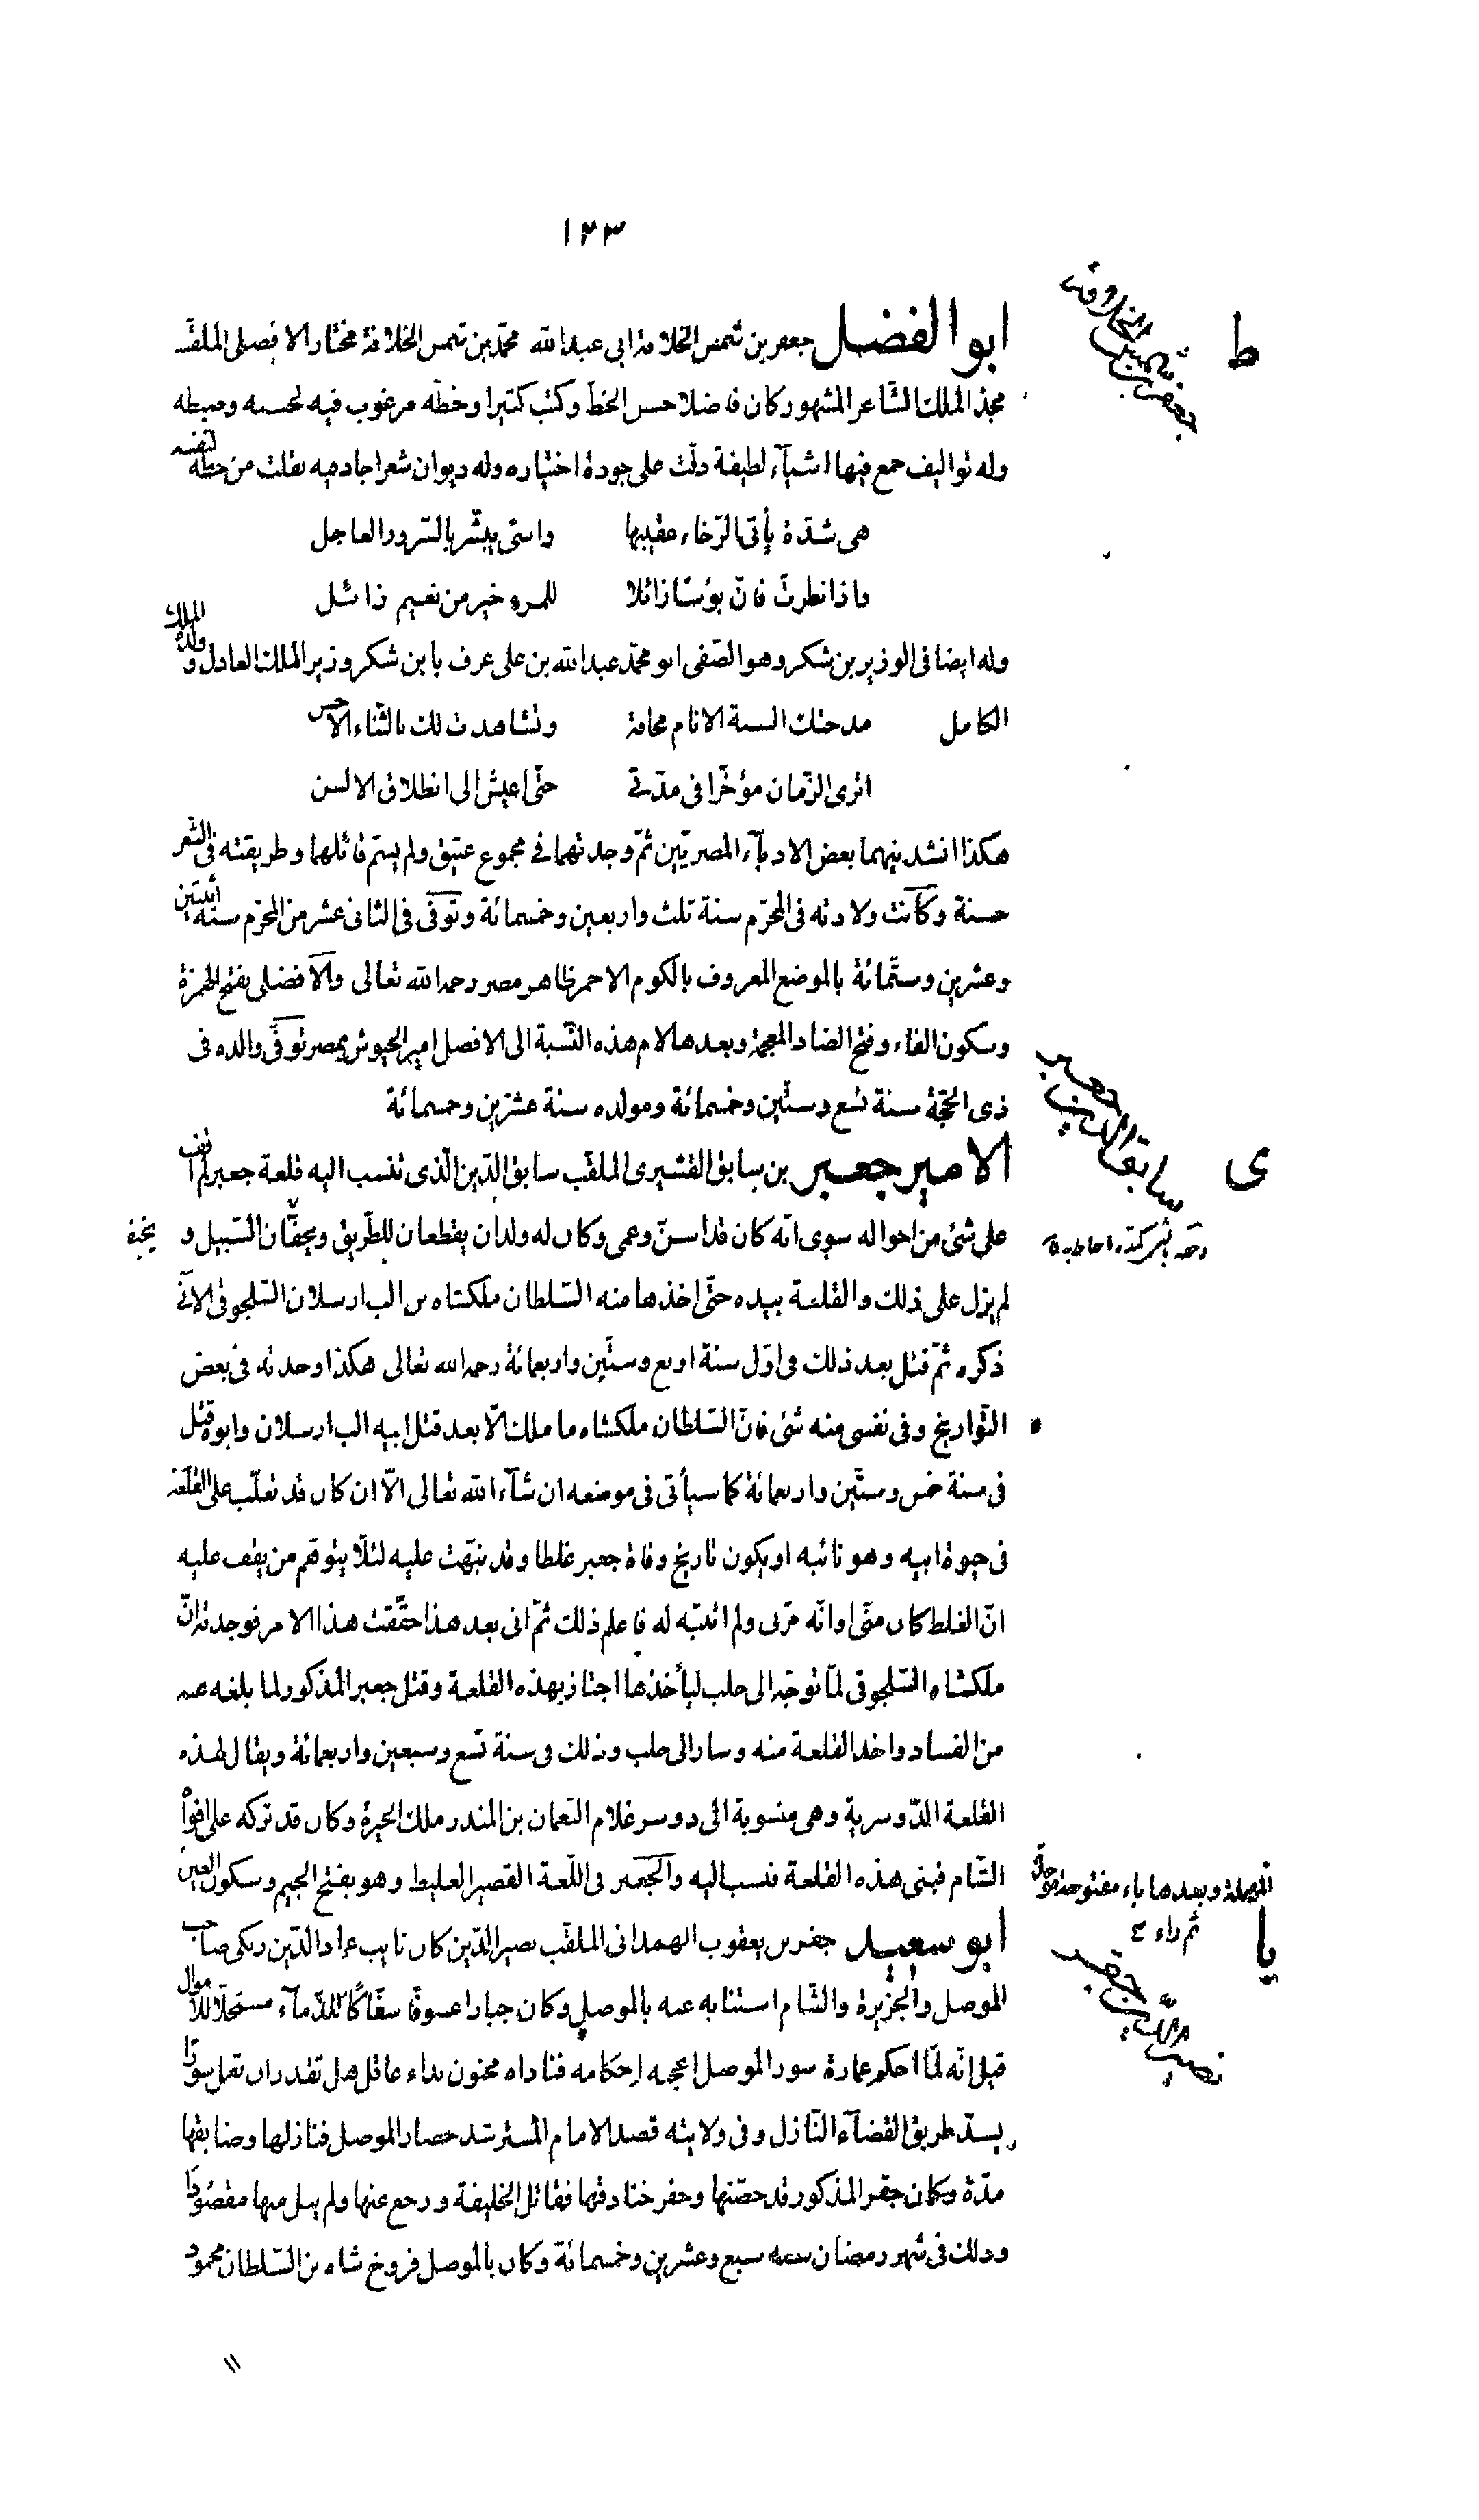 ١٢٣
ط
جعفر بن شمس الخلافة
ابو الفضل جعفر بن شمس الخلافة ابى عبد الله محمّد بن شمس الخلافة مختار الافضلى الملقّب
مجد الملك الشّاعر المشهور كان فاضلا حسن الخطّ وكتب كثيرا وخطّه مرغوب فيه لحسنه وضبطه
وله تواليف جمع فيها اشيآء لطيفة دلّت على جودة اختياره وله ديوان شعر اجاد فيه نقلت من خطّه لنفسه
هى شدّة يأتى الرّخاء عقيبها واسىً يبشّر بالسّرور العاجل
واذا نظرت فانّ بؤسًا زائلا للمرء خير من نعيم زائل
وله ايضا فى الوزير بن شكر وهو الصّفى ابو محمّد عبد الله بن على عرف بابن شكر وزير الملك العادل وولده الملك
الكامل مدحتك السنة الانام مخافة وتشاهدت لك بالثّناء الاحسن
اترى الزّمان مؤخّرا فى مدّتى حتّى اعيش الى انطلاق الالسن
هكذا انشد نيهما بعض الادبآء المصريّين ثمّ وجدتهما فى مجموع عتيق ولم يسمّ قائلهما وطريقته فى الشعر
حسنة وكانت ولادته فى المحرّم سنة ثلث واربعين وخمسمائة وتوفّى فى الثانى عشر من المحرّم سنة اثنتين
وعشرين وستّمائة بالموضع المعروف بالكوم الاحمر ظاهر مصر رحمه الله تعالى والافضلى بفتح الهمزة
وسكون الفاء وفتح الضاد المعجمة وبعدها لام هذه النّسبة الى الافضل امير الجيوش بمصر توفّى والده فى
ذى الحجّة سنة تسع وستّين وخمسمائة ومولده سنة عشرين وخمسمائة
ى
سابق الدين جعبر
الامير جعبر بن سابق القشيرى الملقّب سابق الدّين الّذى تنسب اليه قلعة جعبر لم اقف
على شئ من احواله سوى انّه كان قد اسنّ وعمى وكان له ولدان يقطعان للطّريق ويخيفان السّبيل و
لم يزل على ذلك والقلعة بيده حتّى اخذها منه السّلطان ملكشاه بن الب ارسلان السّلجوقى الآتى
ذكره ثمّ قتل بعد ذلك فى اوّل سنة اربع وستّين واربعمائة رحمه الله تعالى هكذا وجدته فى بعض
التّواريخ وفى نفسى منه شئ فانّ السّلطان ملكشاه ما ملك الّا بعد قتل ابيه الب ارسلان وابوه قتل
فى سنة خمس وستّين واربعمائة كما سيأتى فى موضعه ان شآء الله تعالى الّا ان كان قد تغلّب على القلعة
فى حيوة ابيه وهو نائبه او يكون تاريخ وفاة جعبر غلطا وقد نبّهت عليه لئلّا يتوهّم من يقف عليه
انّ الغلط كان منّى او انّه مرّ بى ولم اتنبّه له فاعلم ذلك ثمّ انى بعد هذا حقّقت هذا الامر فوجدته انّ
ملكشاه السّلجوقى لمّا توجّه الى حلب ليأخذها اجتاز بهذه القلعة وقتل جعبر المذكور لما بلغه عنه
من الفساد واخذ القلعة منه وسار الى حلب وذلك فى سنة تسع وسبعين واربعمائة ويقال لهذه
القلعة الدّوسرية وهى منسوبة الى دوسر غلام النّعمان بن المنذر ملك الحيرة وكان قد تركه على افواه
الشّام فبنى هذه القلعة فنسب اليه والجعبر فى اللّغة القصير الغليظ وهو بفتح الجيم وسكون العين
المهملة وبعدها باء مفتوحة موحدة
ثم راء
يا
نصير الدّين جقر
ابو سعيد جقر بن يعقوب الهمدانى الملقّب نصير الدّين كان نايب عماد الدّين زنكى صاحب
الموصل والجزيرة والشّام استنابه عنه بالموصل وكان جبارا عسوفًا سفّاكًا للدّمآء مستحلّا للاموال
قيل انّه لمّا احكم عمارة سور الموصل اعجبه احكامه فناداه مجنون نداء عاقل هل تقدر ان تعمل سورًا
يسدّ طريق القضآء النّازل وفى ولايته قصد الامام المسترشد حصار الموصل فنازلها وضايقها
مدّة وكان جقر المذكور قد حصّنها وحفر خنادقها فقاتل الخليفة ورجع عنها ولم ينل منها مقصودًا
وذلك فى شهر رمضان سنة سبع وعشرين وخمسمائة وكان بالموصل فروخ شاه بن السّلطان محمود